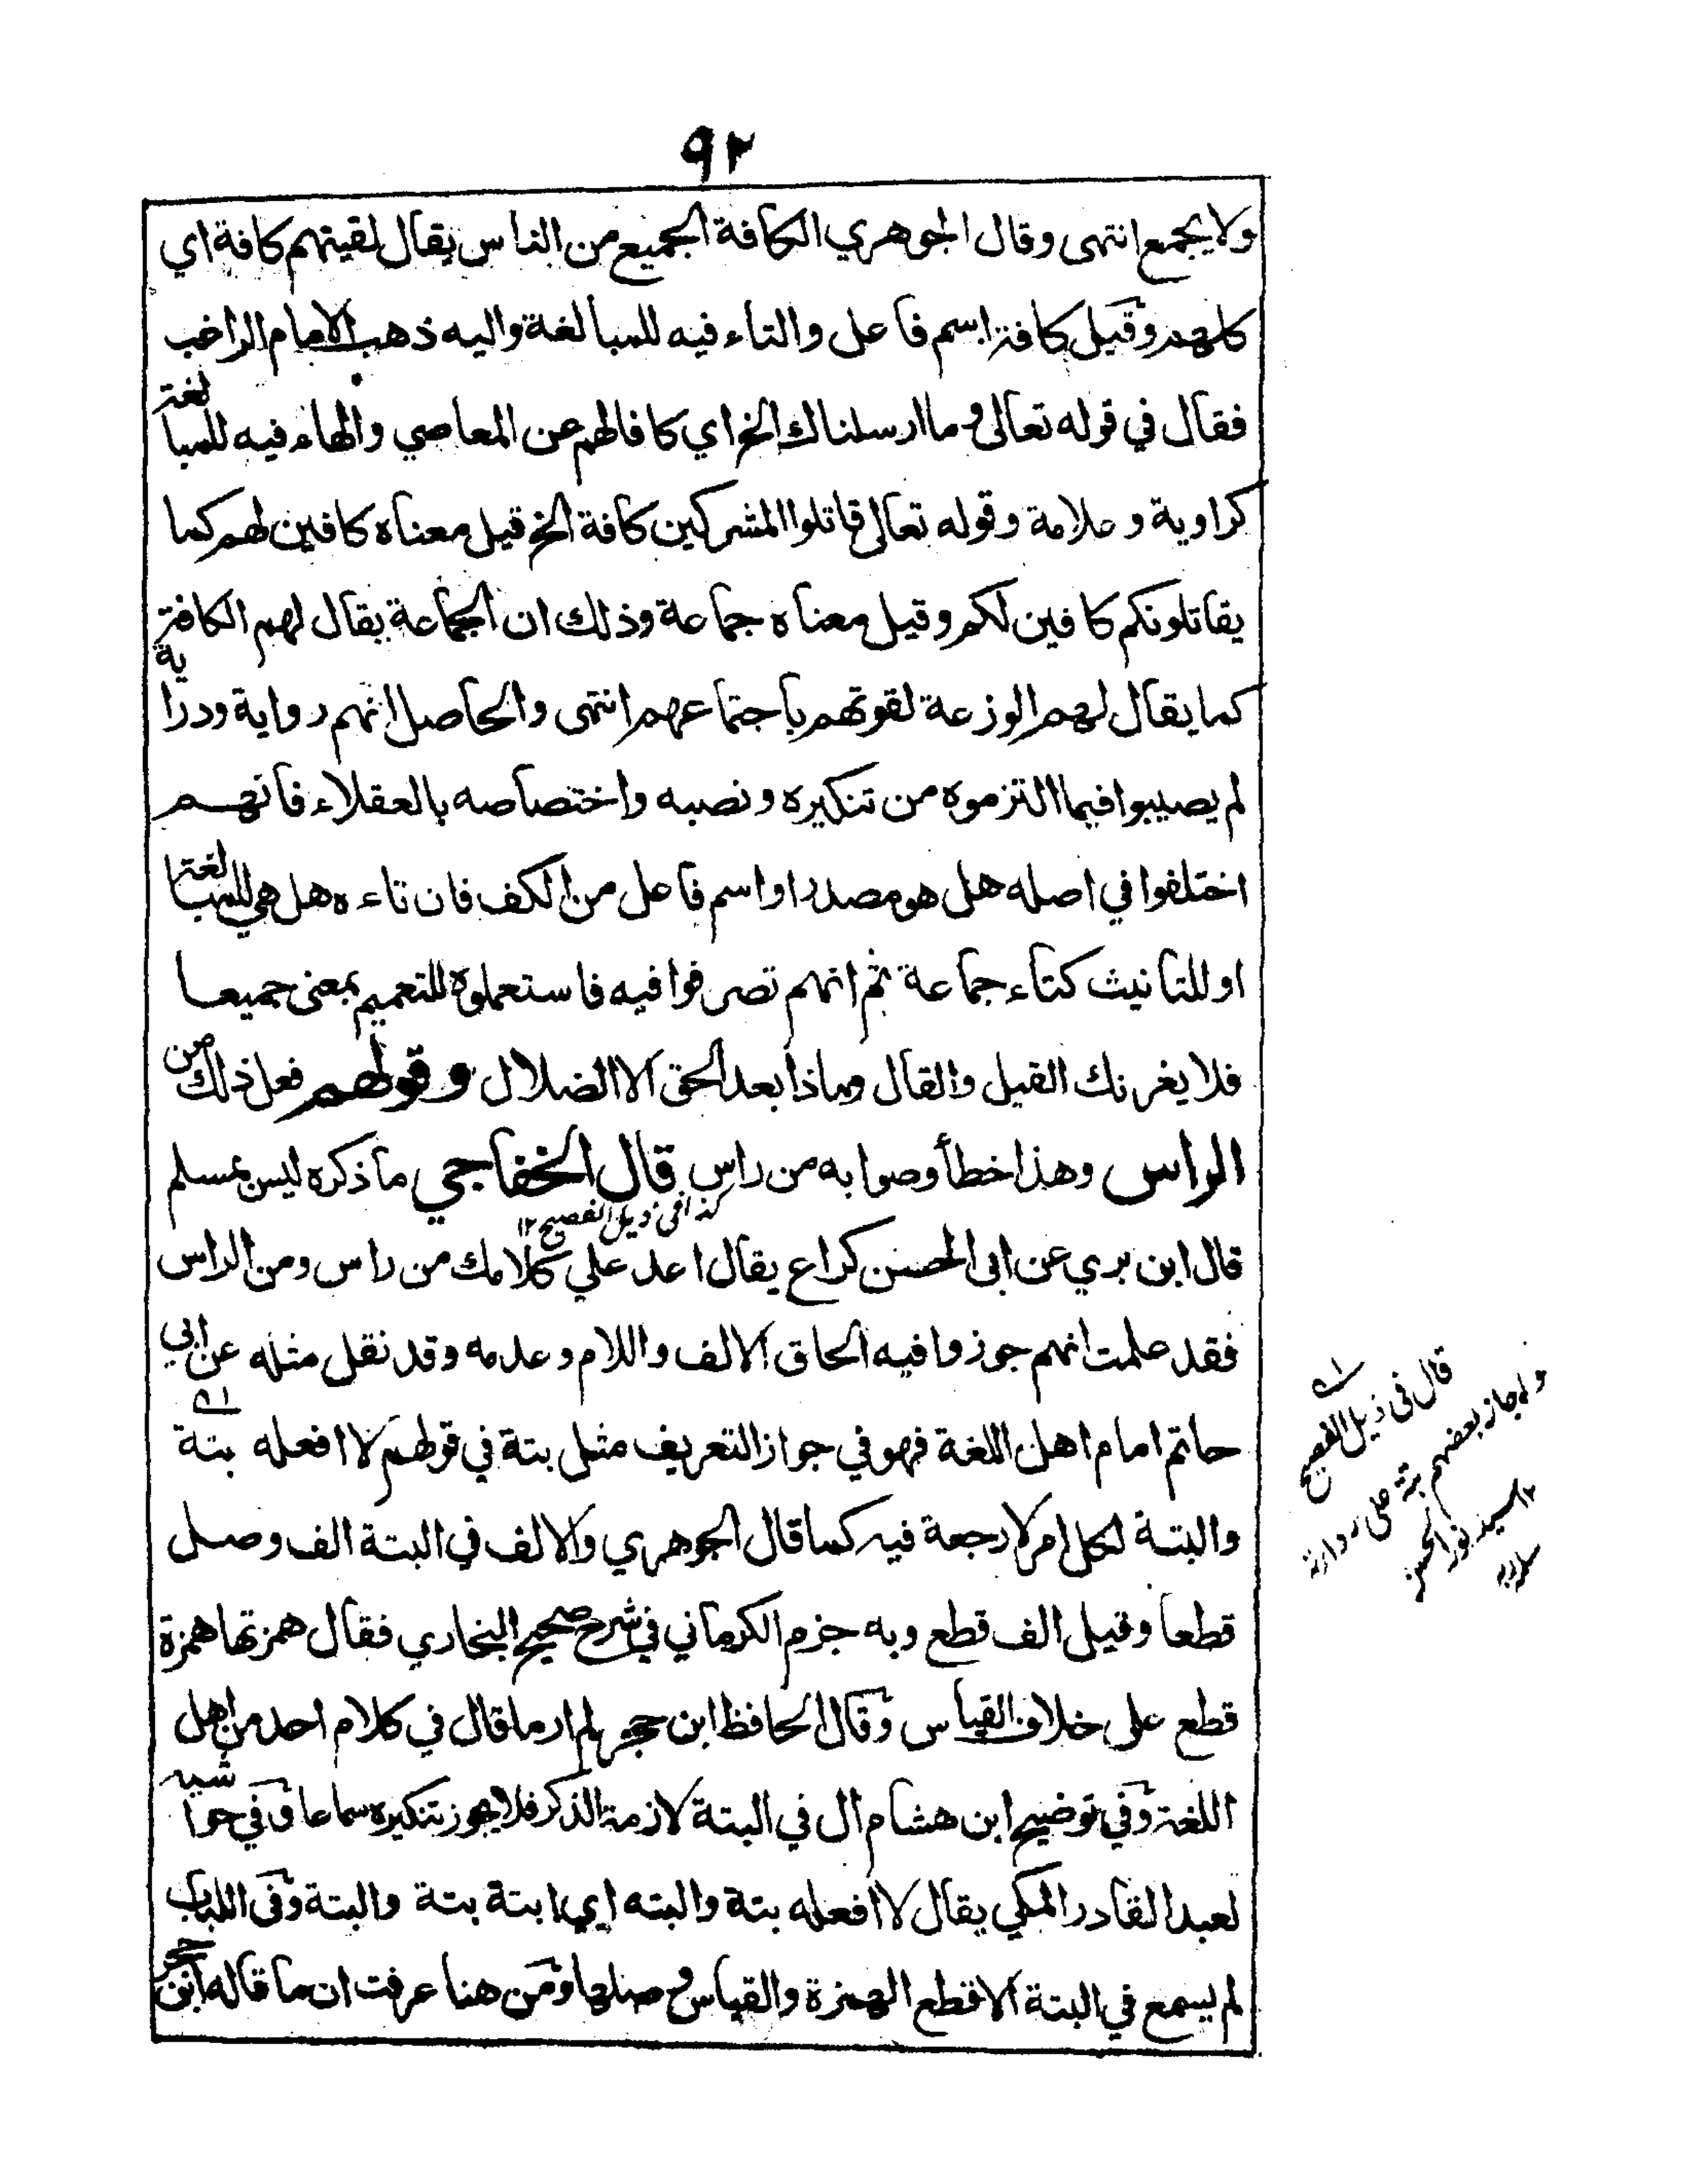 ٩٢
ولا يجمع انتهى وقال الجوهري الكافة الجميع من الناس يقال لقيتهم كافة اي
كلهم وقيل كافة اسم فاعل والتاء فيه للمبالغة واليه ذهب الامام الراغب
فقال في قوله تعالى وما ارسلناك الخ اي كافالهم عن المعاصي والهاء فيه للمبالغة
كراوية وعلامة وقوله تعالى قاتلوا المشركين كافة الخ قيل معناه كافين لهم كما
يقاتلونكم كافين لكم وقيل معناه جماعة وذلك ان الجماعة يقال لهم الكافة
كما يقال لهم الوزعة لقوتهم باجتماعهم انتهى والحاصل انهم رواية ودراية
لم يصيبوا فيما التزموه من تنكيره ونصبه واختصاصه بالعقلاء فانهم
اختلفوا في اصله هل هو مصدر او اسم فاعل من الكف فان تاءه هل هي للمبالغة
او للتانيث كتاء جماعة ثم انهم تصرفوا فيه فاستعملوه للتعميم بمعنى جميعا
فلا يغرنك القيل والقال وماذا بعد الحق الا الضلال وقولهم فعل ذلك من
الراس وهذا خطأ وصوابه من راس قال الخفاجي ما ذكره ليس بمسلم
كذا في ذيل الفصيح ١٢
قال ابن بري عن ابي الحسن كراع يقال اعد علي كلامك من راس ومن الراس
فقد علمت انهم جوزوا فيه الحاق الالف واللام وعدمه وقد نقل مثله عن ابي
حاتم امام اهل اللغة فهو في جواز التعريف مثل بتة في قولهم لا افعله بتة
والبتة لكل امر لا رجعة فيه كما قال الجوهري والالف في البتة الف وصل
قطعا وقيل الف قطع وبه جزم الكرماني في شرح صحيح البخاري فقال همزتها همزة
قطع على خلاف القياس وقال الحافظ ابن حجر لم ار ما قال في كلام احد من اهل
اللغة وفي توضيح ابن هشام ال في البتة لازمة الذكر فلا يجوز تنكيره سماعا وفي حواشيه
لعبد القادر المكي يقال لا افعله بتة والبته اي ابتة بتة والبتة وفي اللباب
لم يسمع في البتة الا قطع الهمزة والقياس وصلها ومن هنا عرفت ان ما قاله ابن حجر
قال في ذيل الفصيح
ولم جاز بعضهم بتة على
السيد نور الحسن